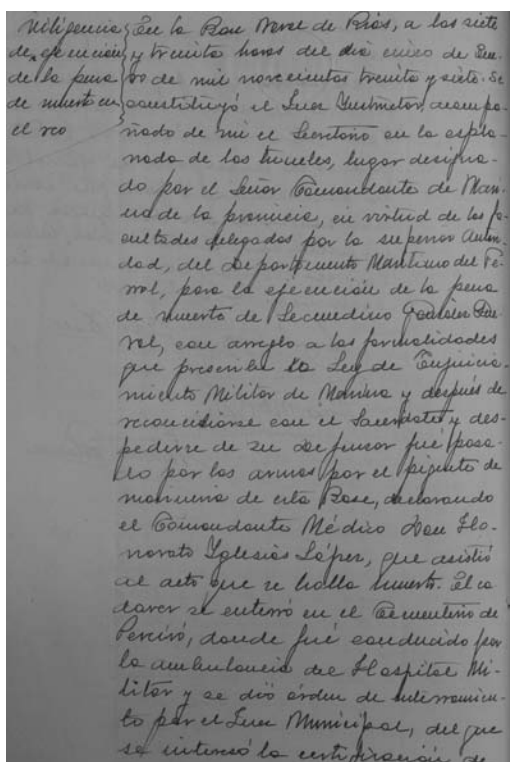 Diligencia
de ejecución
de la pena
de muerte en
el reo
En la Base Naval de Ríos, a las siete
y treinta horas del día cinco de Ene-
ro de mil novecientos treinta y siete. Se
constituyó el Juez Instructor, acompa-
ñado de mi el Secretario en la expla-
nada de los tuneles, lugar designa-
do por el Señor Comandante de Mari-
na de la provincia, en virtud de las fa-
cultades delegadas por la superior Autori-
dad, del Departamento Maritimo del Fe-
rrol, para la ejecución de la pena
de muerte de Secundino
con arreglo a las formalidades
que prescribe la Ley de Enjuicia-
miento Militar de Marina y después de
reconciliarse con el Sacerdote y des-
pedirse de su defensor fué pasa-
do por las armas por el piquete de
marineria de esta Base, declarando
el Comandante Médico Don Ho-
norato Iglesias López, que asistió
al acto que se halla muerto. El ca-
daver se enterró en el Cementerio de
donde fué conducido por
la ambulancia del Hospital Mi-
litar y se dió órden de enterramien-
to por el Juez Municipal, del que
se interesó la certificación de